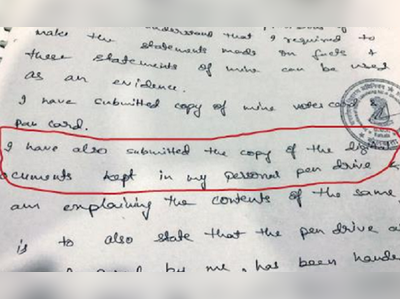 make the understand that I required to
the statements made on facts &
these statements of mine can be used
as an evidence.
I have submitted copy of mine voter card
pan card.
I have also submitted the copy of the
ocuments kept in my personal pen drive
am explaining the contents of the same
is to also state that the pen drive a
by me, has been hande